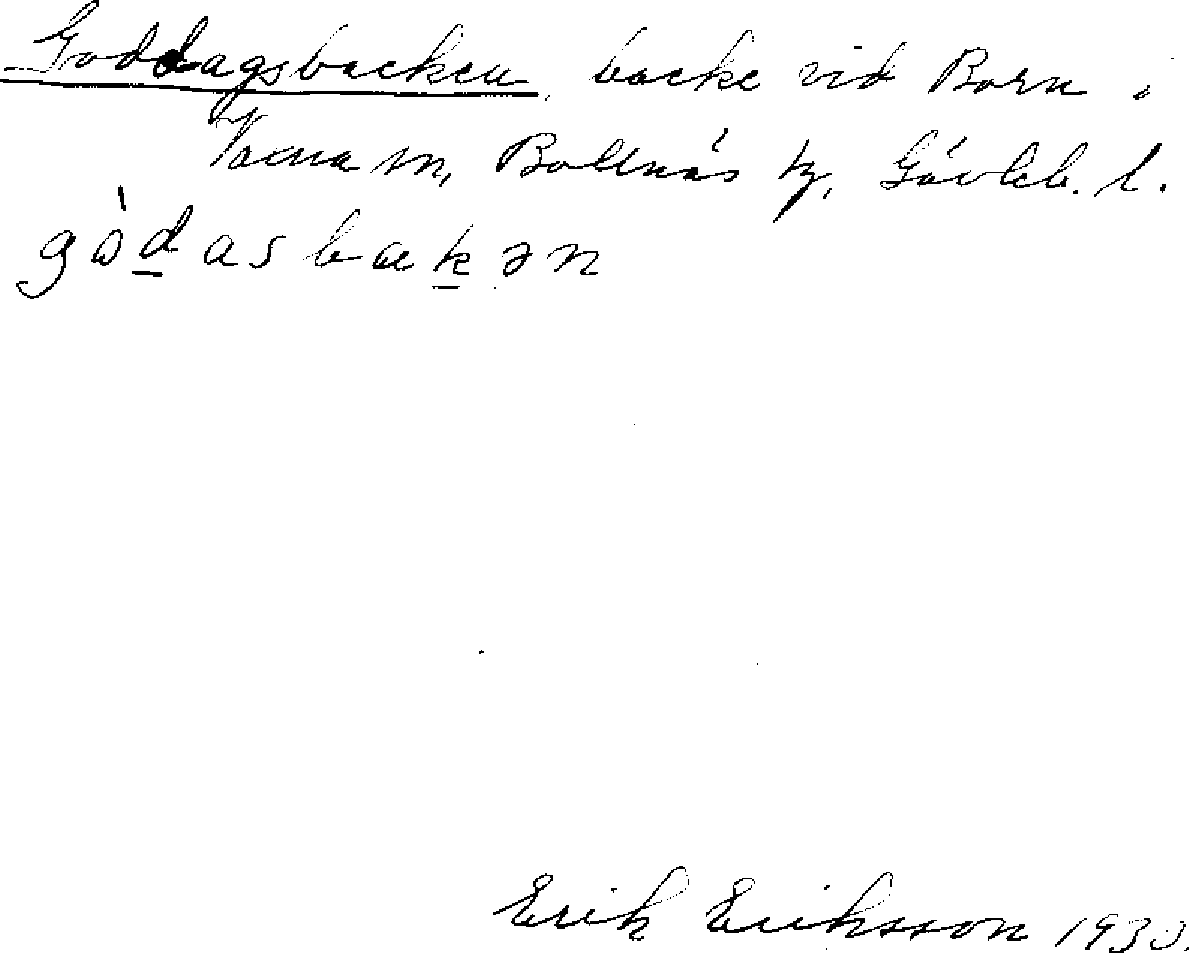 Goddagsbacken, backe vid Born i
sn, Bollnäs tg, Gävleb. l.
gòd̲asbak̲ən
Erik Eriksson 1930.